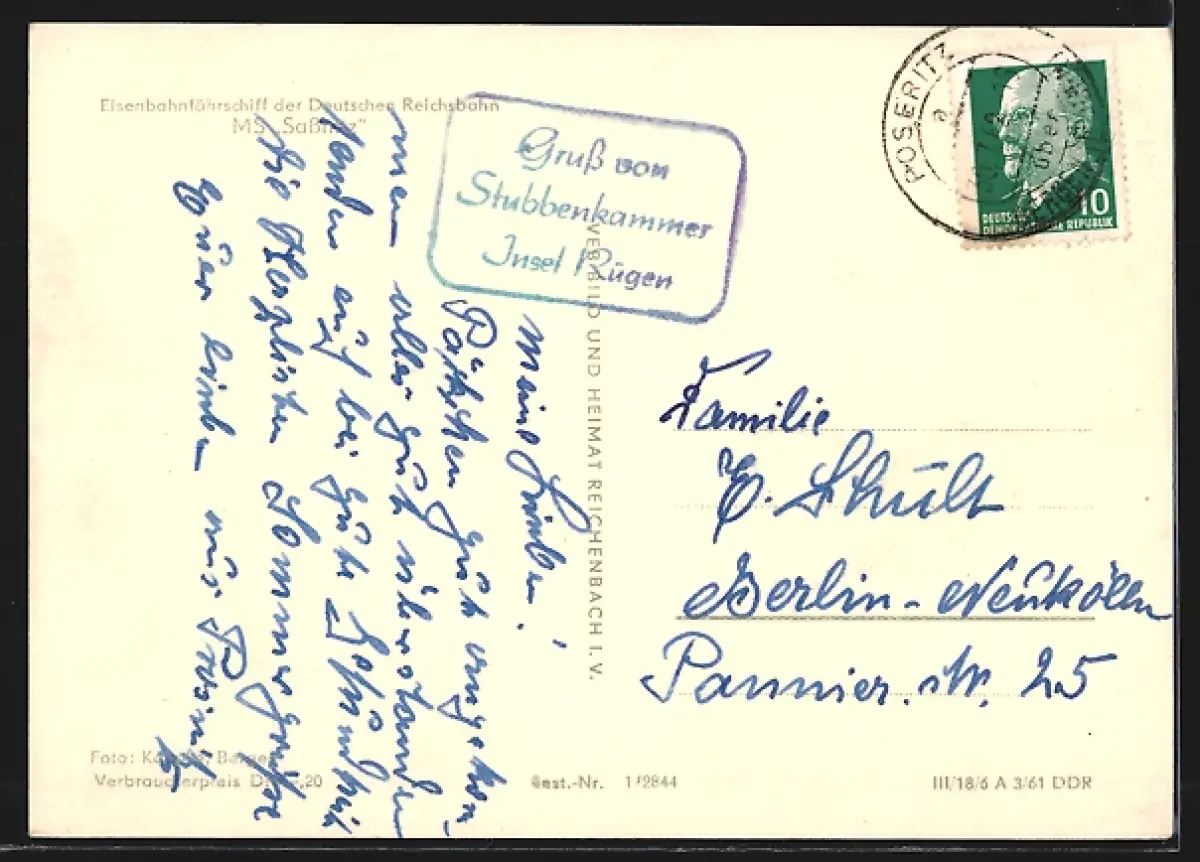 Eisenbahnfährschiff der Deutschen Reichsbahn
MS „Saßnitz"
Gruß von
Stubbenkammer
Insel Rügen
POSERITZ
10
DEUTSCHE
DEMOKRATISCHE REPUBLIK
Meine Lieben!
Päckchen gut angekom-
men alles gut überstanden
auf bei guter Gesundheit
Die herzlichsten Sommergrüße
Euer lieben aus Poseritz
VEB BILD UND HEIMAT REICHENBACH I. V.
Familie
E. Schult
Berlin-Neukölln
Pannier. str. 25
Foto: Bergen
Verbraucherpreis DM -,20
Best.-Nr. 1/2844
III/18/6 A 3/61 DDR